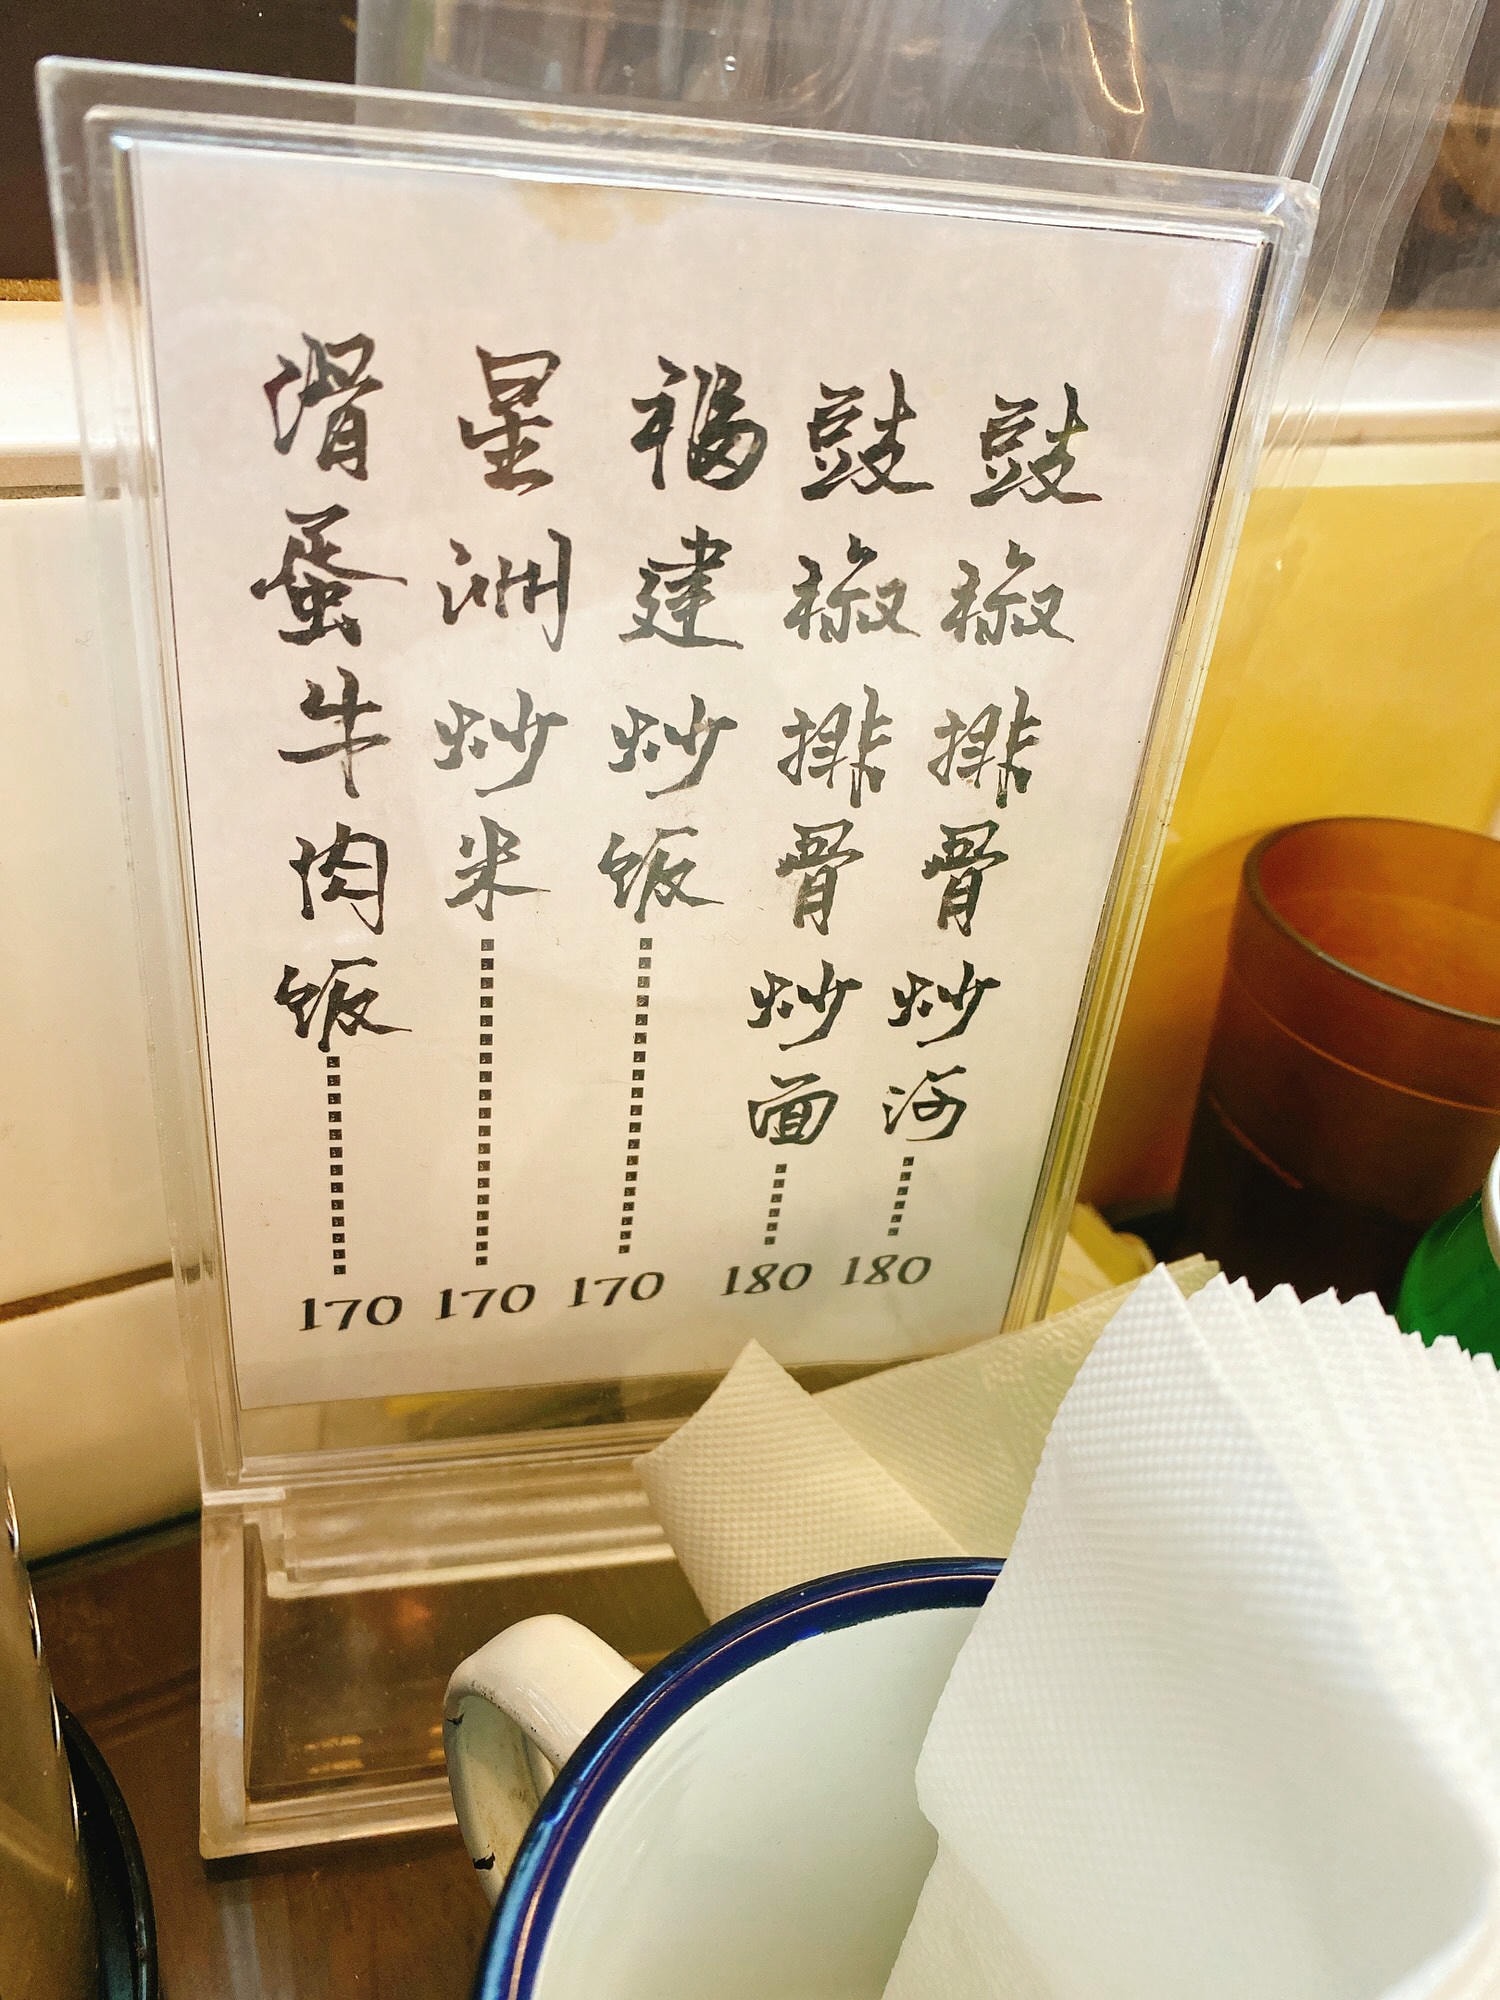 豉椒排骨炒河 180
豉椒排骨炒面 180
福建炒饭 170
星洲炒米 170
滑蛋牛肉饭 170